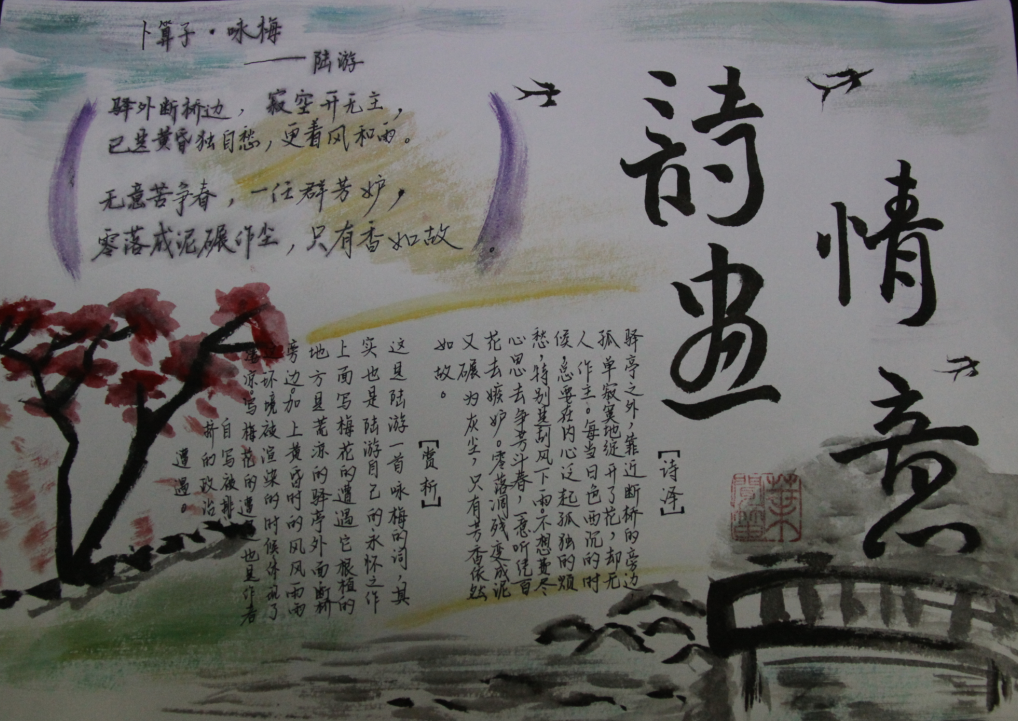 卜算子·咏梅
——陆游
驿外断桥边，寂空开无主，
已是黄昏独自愁，更着风和雨。
无意苦争春，一任群芳妒，
零落成泥碾作尘，只有香如故。
詩画
情意
【诗译】
驿亭之外，靠近断桥的旁边
孤单寂寞地绽开了花，却无
人作主。每当日色西沉的时
候，总要在内心泛起孤独的烦
愁，特别是刮风下雨。不想费尽
心思去争芳斗春，一意听凭百
花去嫉妒。零落凋残变成泥
又碾为灰尘，只有芳香依然
如故。
【赏析】
这是陆游一首咏梅的词，其
实也是陆游自己的咏怀之作
上面写梅花的遭遇它根植的
地方且荒凉的驿亭外面断桥
旁边加上黄昏时的风风雨雨
环境被渲染的时候体现了
凉写梅花的遭遇也是作者
自写被排
挤的政治
遭遇。